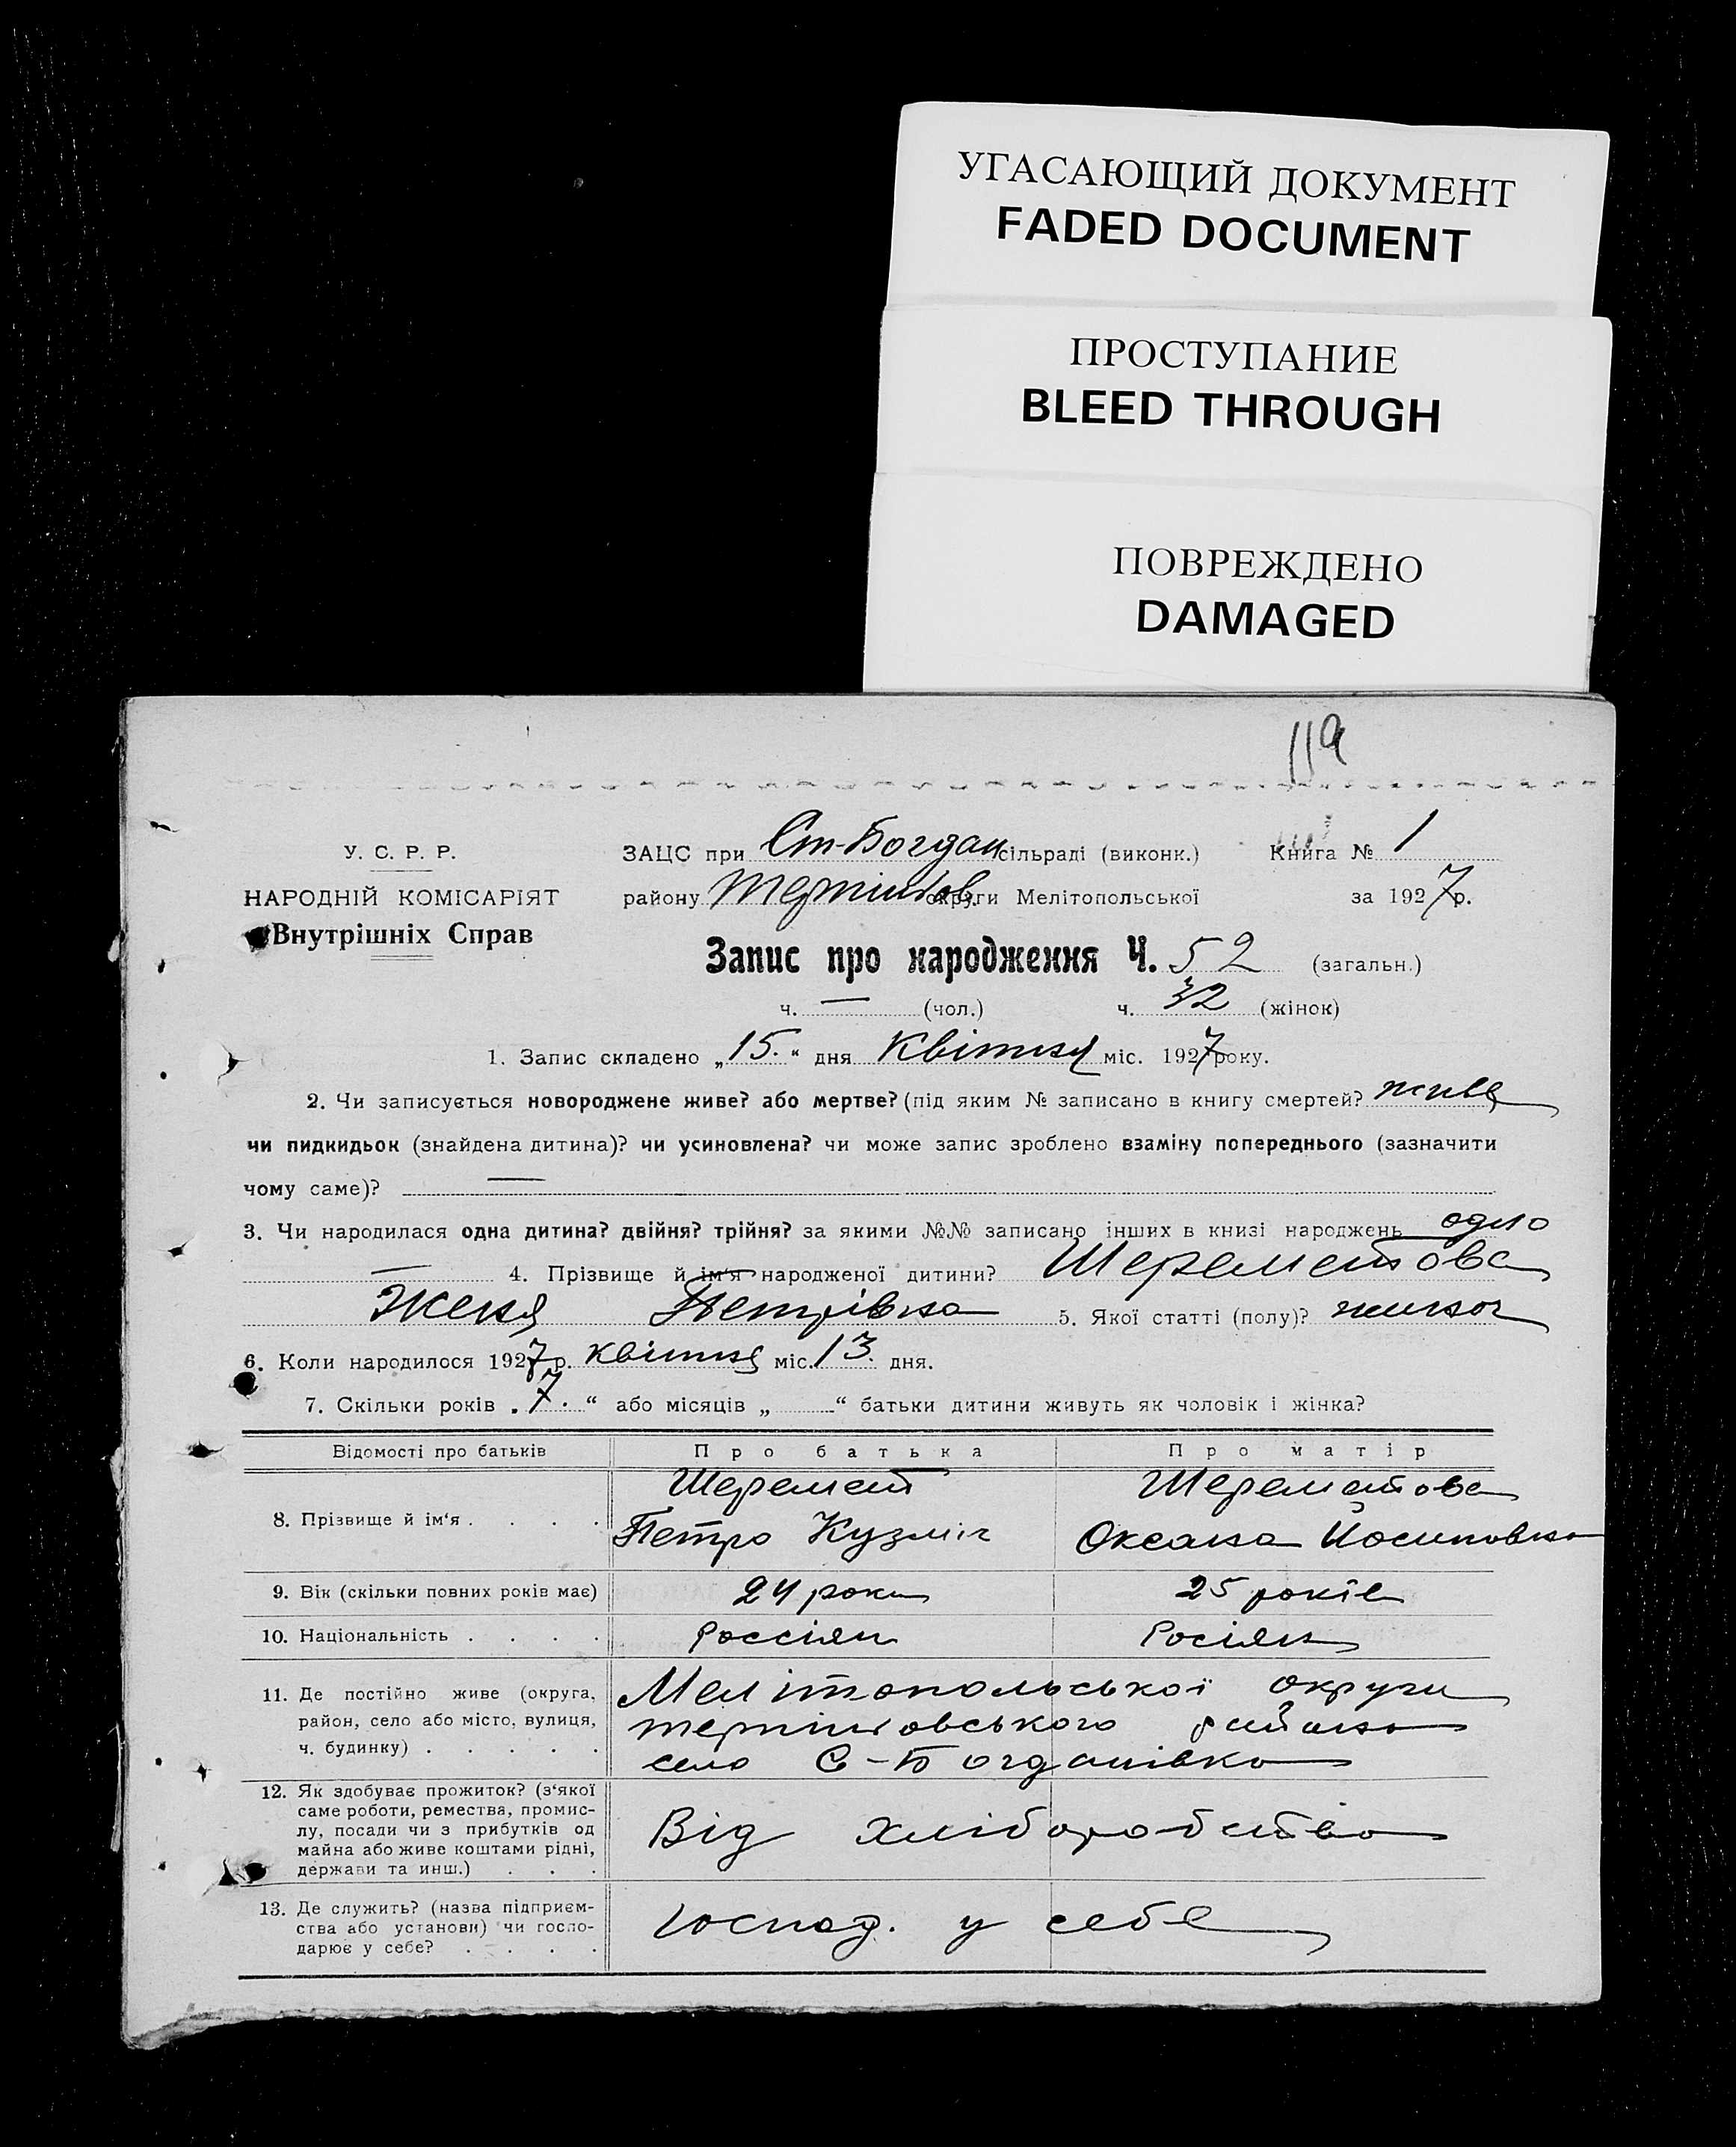 УГАСАЮЩИЙ ДОКУМЕНТ
FADED DOCUMENT
ПРОСТУПАНИЕ
BLEED THROUGH
ПОВРЕЖДЕНО
DAMAGED
119
У. С. Р. Р.
НАРОДНІЙ КОМІСАРІЯТ
Внутрішніх Справ
ЗАЦС при Ст-Богдан сільраді (виконк.) Книга № 1
району Терпіннов. округи Мелітопольської за 1927 р.
Запис про народження Ч. 52 (загальн.)
ч. — (чол.) ч. 32 (жінок)
1. Запис складено „15.“ дня Квітня міс. 1927 року.
2. Чи записується новороджене живе? або мертве? (під яким № записано в книгу смертей? живе
чи пидкидьок (знайдена дитина)? чи усиновлена? чи може запис зроблено взаміну попереднього (зазначити
чому саме)? —
3. Чи народилася одна дитина? двійня? трійня? за якими №№ записано інших в книзі народжень одно
— 4. Прізвище й ім'я народженої дитини? Шереметова
Женя Петрівна 5. Якої статті (полу)? жиноч
6. Коли народилося 1927 р. квітня міс. 13. дня.
7. Скільки років „7.“ або місяців „ “ батьки дитини живуть як чоловік і жінка?
Відомості про батьків Про батька Про матір
8. Прізвище й ім'я . . . .
Шеремет
Петро Кузмич
Шереметова
Оксана Йосиповна
9. Вік (скільки повних років має) 24 роки 25 років
10. Національність . . . . Россіян Росіян
11. Де постійно живе (округа,
район, село або місто, вулиця,
ч. будинку) . . . . .
Мелітопольської округи
терпіновського району
село С-Богданівка
12. Як здобуває прожиток? (з'якої
саме роботи, ремества, промис-
лу, посади чи з прибутків од
майна або живе коштами рідні,
держави та инш.) . . .
Від хліборобства
13. Де служить? (назва підприєм-
ства або установи) чи госпо-
дарює у себе? . . . .
господ. у себе